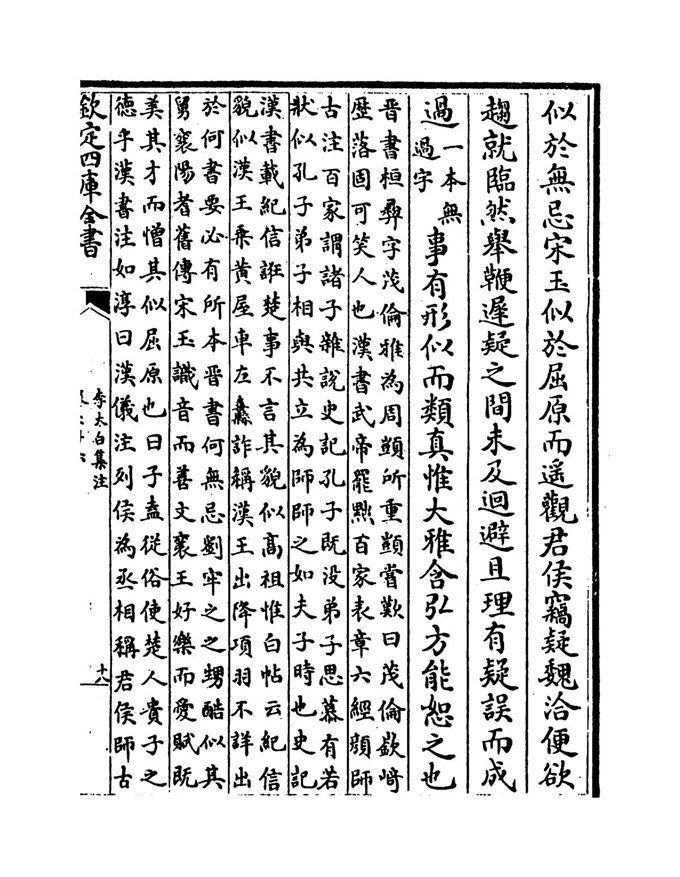 似於無忌宋玉似於屈原而遥觀君侯竊疑魏洽便欲
趨就臨然舉鞭遲疑之間未及迴避且理有疑誤而成
過一本無過字事有形似而類真惟大雅含弘方能恕之也
晉書桓彝字茂倫雅為周顗所重顗嘗歎曰茂倫嶔﨑
歴落固可笑人也漢書武帝罷黜百家表章六經顔師
古注百家謂諸子雜說史記孔子既没弟子思慕有若
狀似孔子弟子相與共立為師師之如夫子時也史記
漢書載紀信誑楚事不言其貌似髙祖惟白帖云紀信
貌似漢王乘黄屋車左纛詐稱漢王出降項羽不詳出
於何書要必有所本晉書何無忌劉牢之之甥酷似其
舅襄陽耆舊傳宋玉識音而善文襄王好樂而愛賦既
美其才而憎其似屈原也曰子盍從俗使楚人貴子之
德乎漢書注如淳曰漢儀注列侯為丞相稱君侯師古
欽定四庫全書
李太白集注
十八